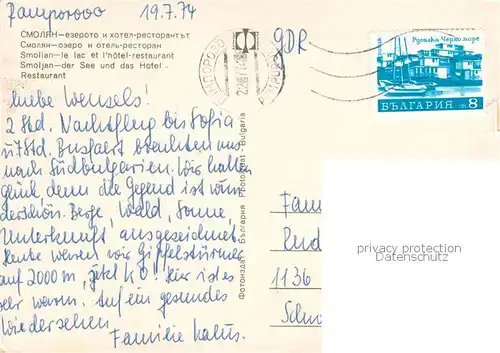 Pamporovo 19.7.74
СМОЛЯН—езерото и хотел-ресторантът
Смолян—озеро и отель-ресторан
Smolian—le lac et l'hôtel-restaurant
Smoljan—der See und das Hotel-
Restaurant
GDR
Русалка Черно море
БЪЛГАРИЯ 8
Liebe Wensels!
2 Std. Nachtflug bis Sofia
u. 7 Std. Busfahrt brachten uns
nach Südbulgarien. Wir hatten
Glück, denn die Gegend ist wun
derschön. Berge, Wald, Sonne,
Unterkunft ausgezeichnet.
Heute waren wir Gipfelstürmer
auf 2000 m, jetzt KO! Hier ist es
sehr warm. Auf ein gesundes
Wiedersehen
Familie
Фотоиздат • България Photoizdat • Bulgaria
Fam
Rud
1136
privacy protection
Datenschutz